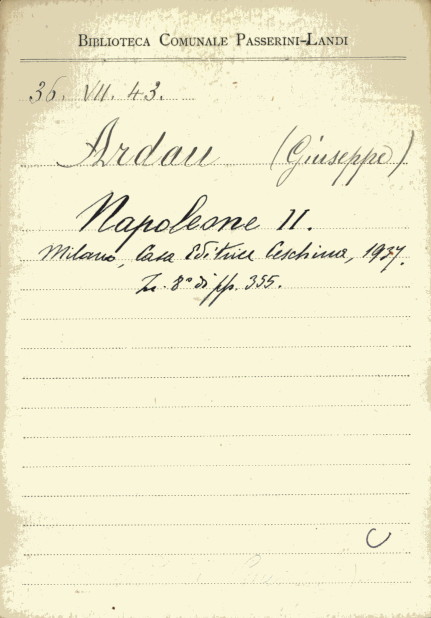 BIBLIOTECA COMUNALE PASSERINI-LANDI
36. VII. 43.
Ardau (Giuseppe)
Napoleone II.
Milano, Casa Editrice Ceschina, 1937.
In 8° di pp. 355.
C